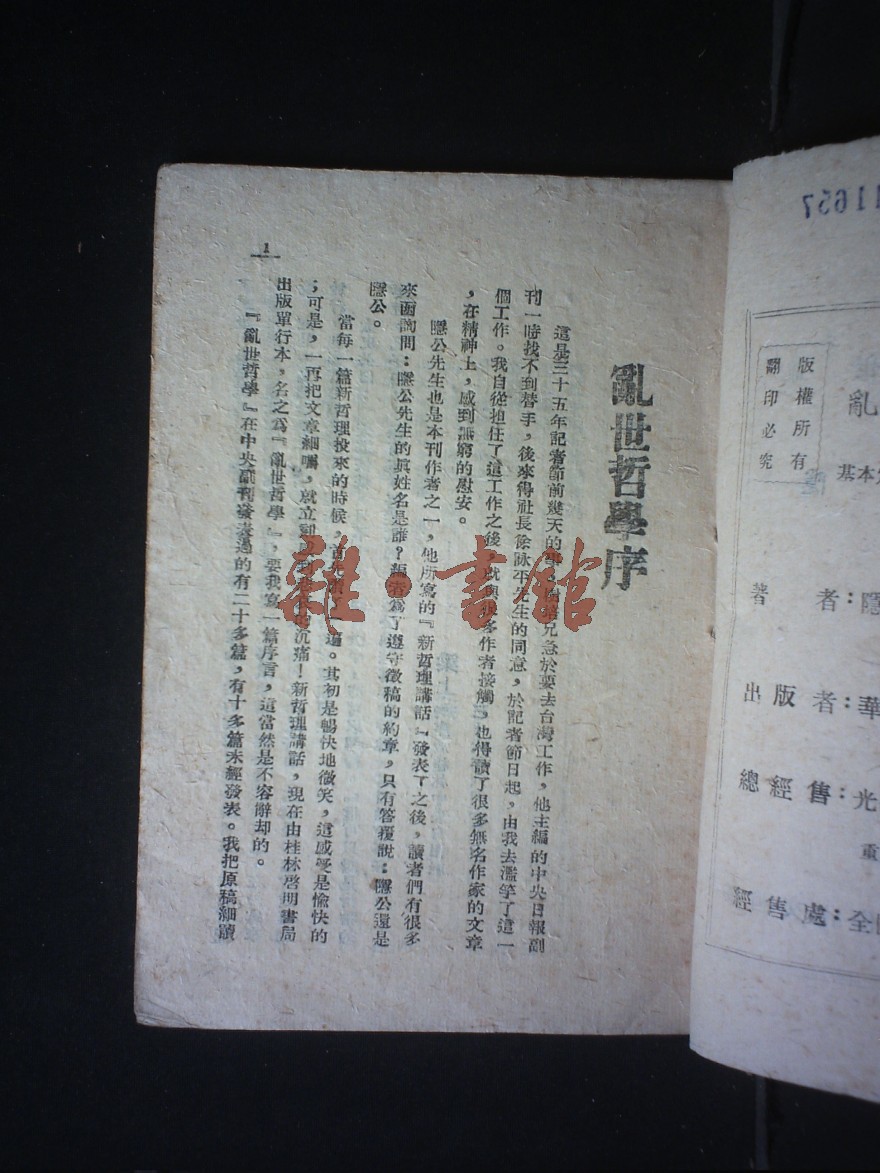 11657
版權所有
翻印必究
亂
基本
著者：隱
出版者：華
總經售：光
重
經售處：全
亂世哲學序
這是三十五年記者節前幾天的事，
兄急於要去台灣工作，他主編的中央日報副
刊一時找不到替手，後來得社長徐詠平先生的同意，於記者節日起，由我去濫竽了這一
個工作。我自從担任了這工作之後，就與很多作者接觸，也得讀了很多無名作家的文章
，在精神上，感到無窮的慰安。
隱公先生也是本刊作者之一，他所寫的『新哲理講話』發表了之後，讀者們有很多
來函詢問：隱公先生的眞姓名是誰？編者爲了遵守徵稿的約章，只有答覆說：隱公還是
隱公。
當每一篇新哲理投來的時候，首先
一遍。其初是暢快地微笑，這感受是愉快的
；可是，一再把文章細嚼，就立刻
的沉痛！新哲理講話，現在由桂林啓明書局
出版單行本，名之爲『亂世哲學』，要我寫一篇序言，這當然是不容辭却的。
『亂世哲學』在中央副刊發表過的有二十多篇，有十多篇未經發表。我把原稿細讀
1
雜·書館